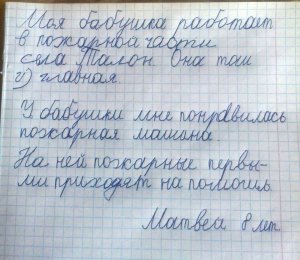 Моя бабушка работает
в пожарной части
села Талон. Она там
главная.
У бабушки мне понравилась
пожарная машина.
На ней пожарные первы-
ми приходят на помощь.
Матвей 8 лет